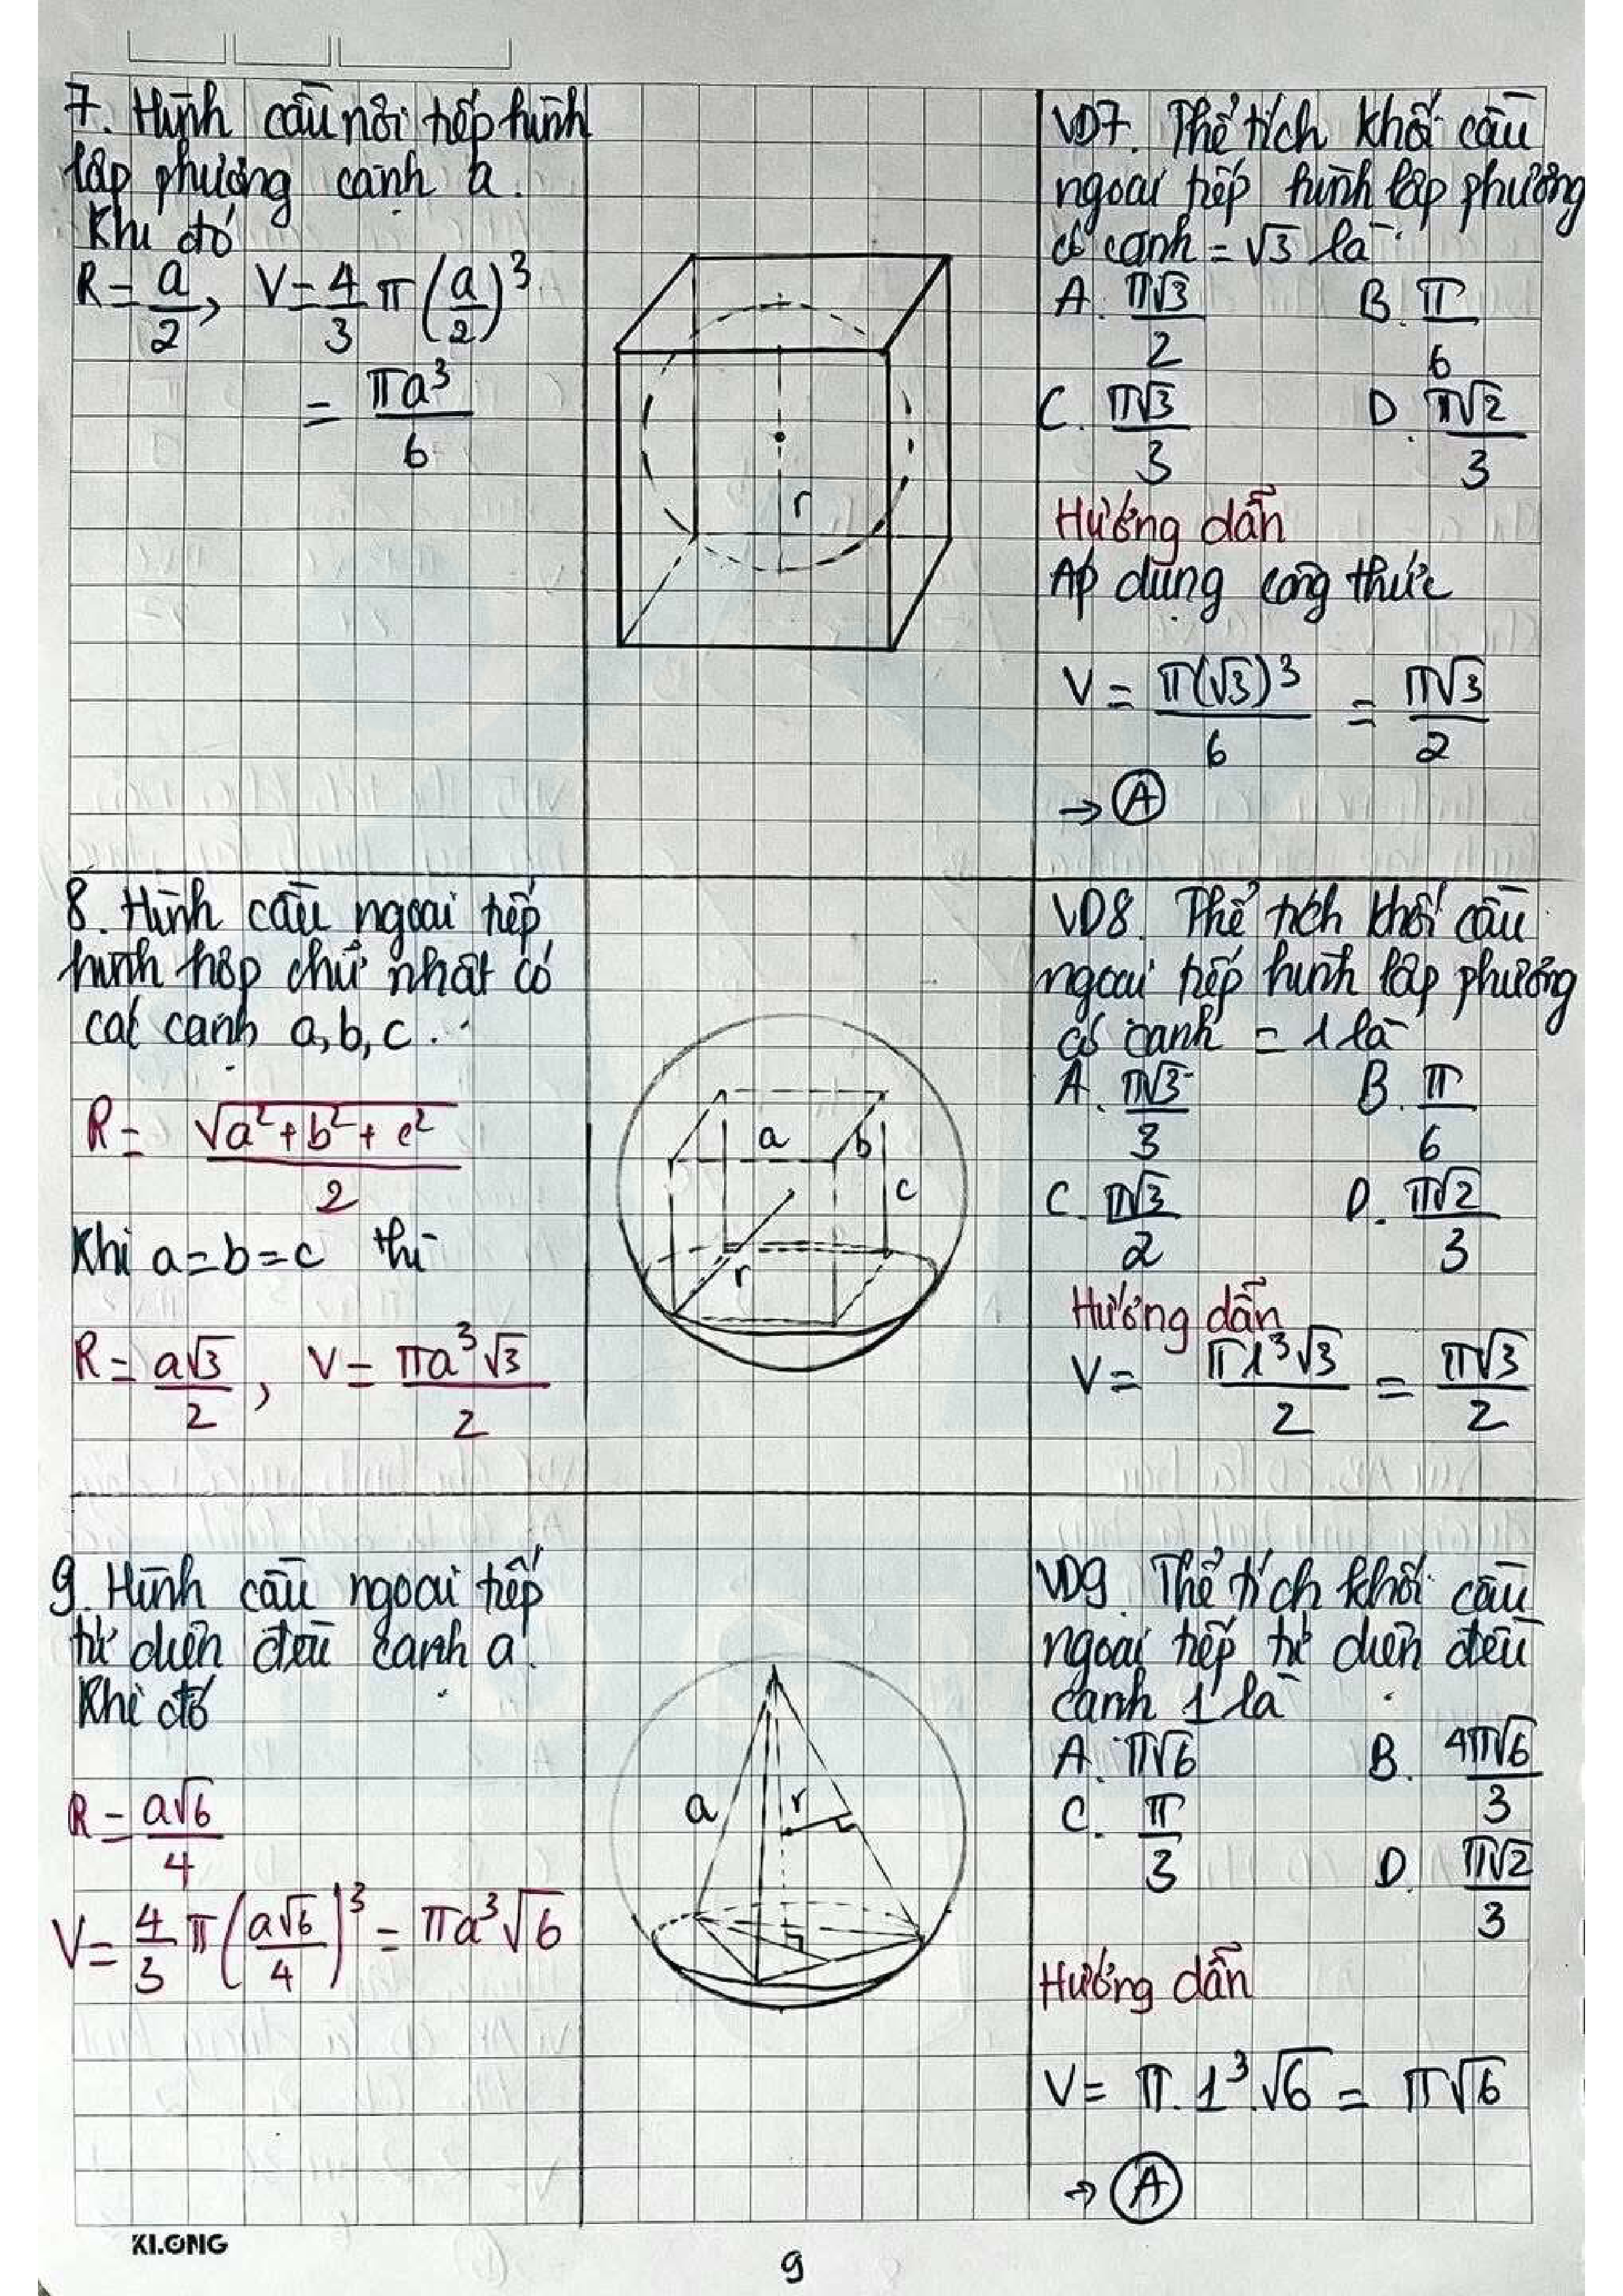 7. Hình cầu nội tiếp hình
lập phương cạnh a.
Khi đó
R = a/2, V = 4/3 π (a/2)³
= πa³/6
r
VD7. Thể tích khối cầu
ngoại tiếp hình lập phương
có cạnh = √3 là
A. π√3/2 B. π/6
C. π√3/3 D. π√2/3
Hướng dẫn
Áp dụng công thức
V = π(√3)³/6 = π√3/2
→ Ⓐ
8. Hình cầu ngoại tiếp
hình hộp chữ nhật có
các cạnh a, b, c.
R = √(a²+b²+c²)/2
Khi a=b=c thì
R = a√3/2, V = πa³√3/2
a
b
c
r
VD8. Thể tích khối cầu
ngoại tiếp hình lập phương
có cạnh = 1 là
A. π√3/3 B. π/6
C. π√3/2 D. π√2/3
Hướng dẫn
V = π1³√3/2 = π√3/2
9. Hình cầu ngoại tiếp
tứ diện đều cạnh a.
Khi đó
R = a√6/4
V = 4/3 π (a√6/4)³ = πa³√6
a
r
VD9. Thể tích khối cầu
ngoại tiếp tứ diện đều
cạnh 1 là
A. π√6 B. 4π√6/3
C. π/3 D. π√2/3
Hướng dẫn
V = π.1³.√6 = π√6
→ Ⓐ
KLONG
9